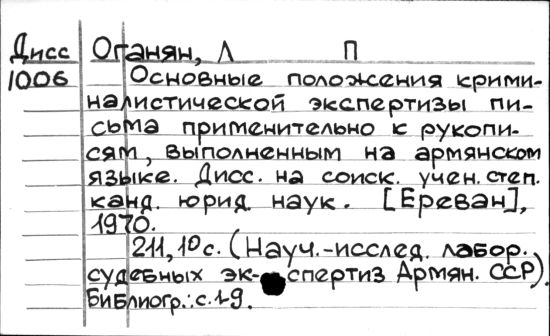 Дисс Оганян, Л П
1006 Основные положения крими-
налистической экспертизы пи-
сьма применительно к рукопи-
сям, выполненным на армянском
языке. Дисс. на соиск. учен. степ.
канд. юрид. наук. [Ереван],
1970.
211, 10 с. (Науч.-исслед. лабор.
судебных эк-спертиз Армян. ССР).
Библиогр.: с. 1-9.